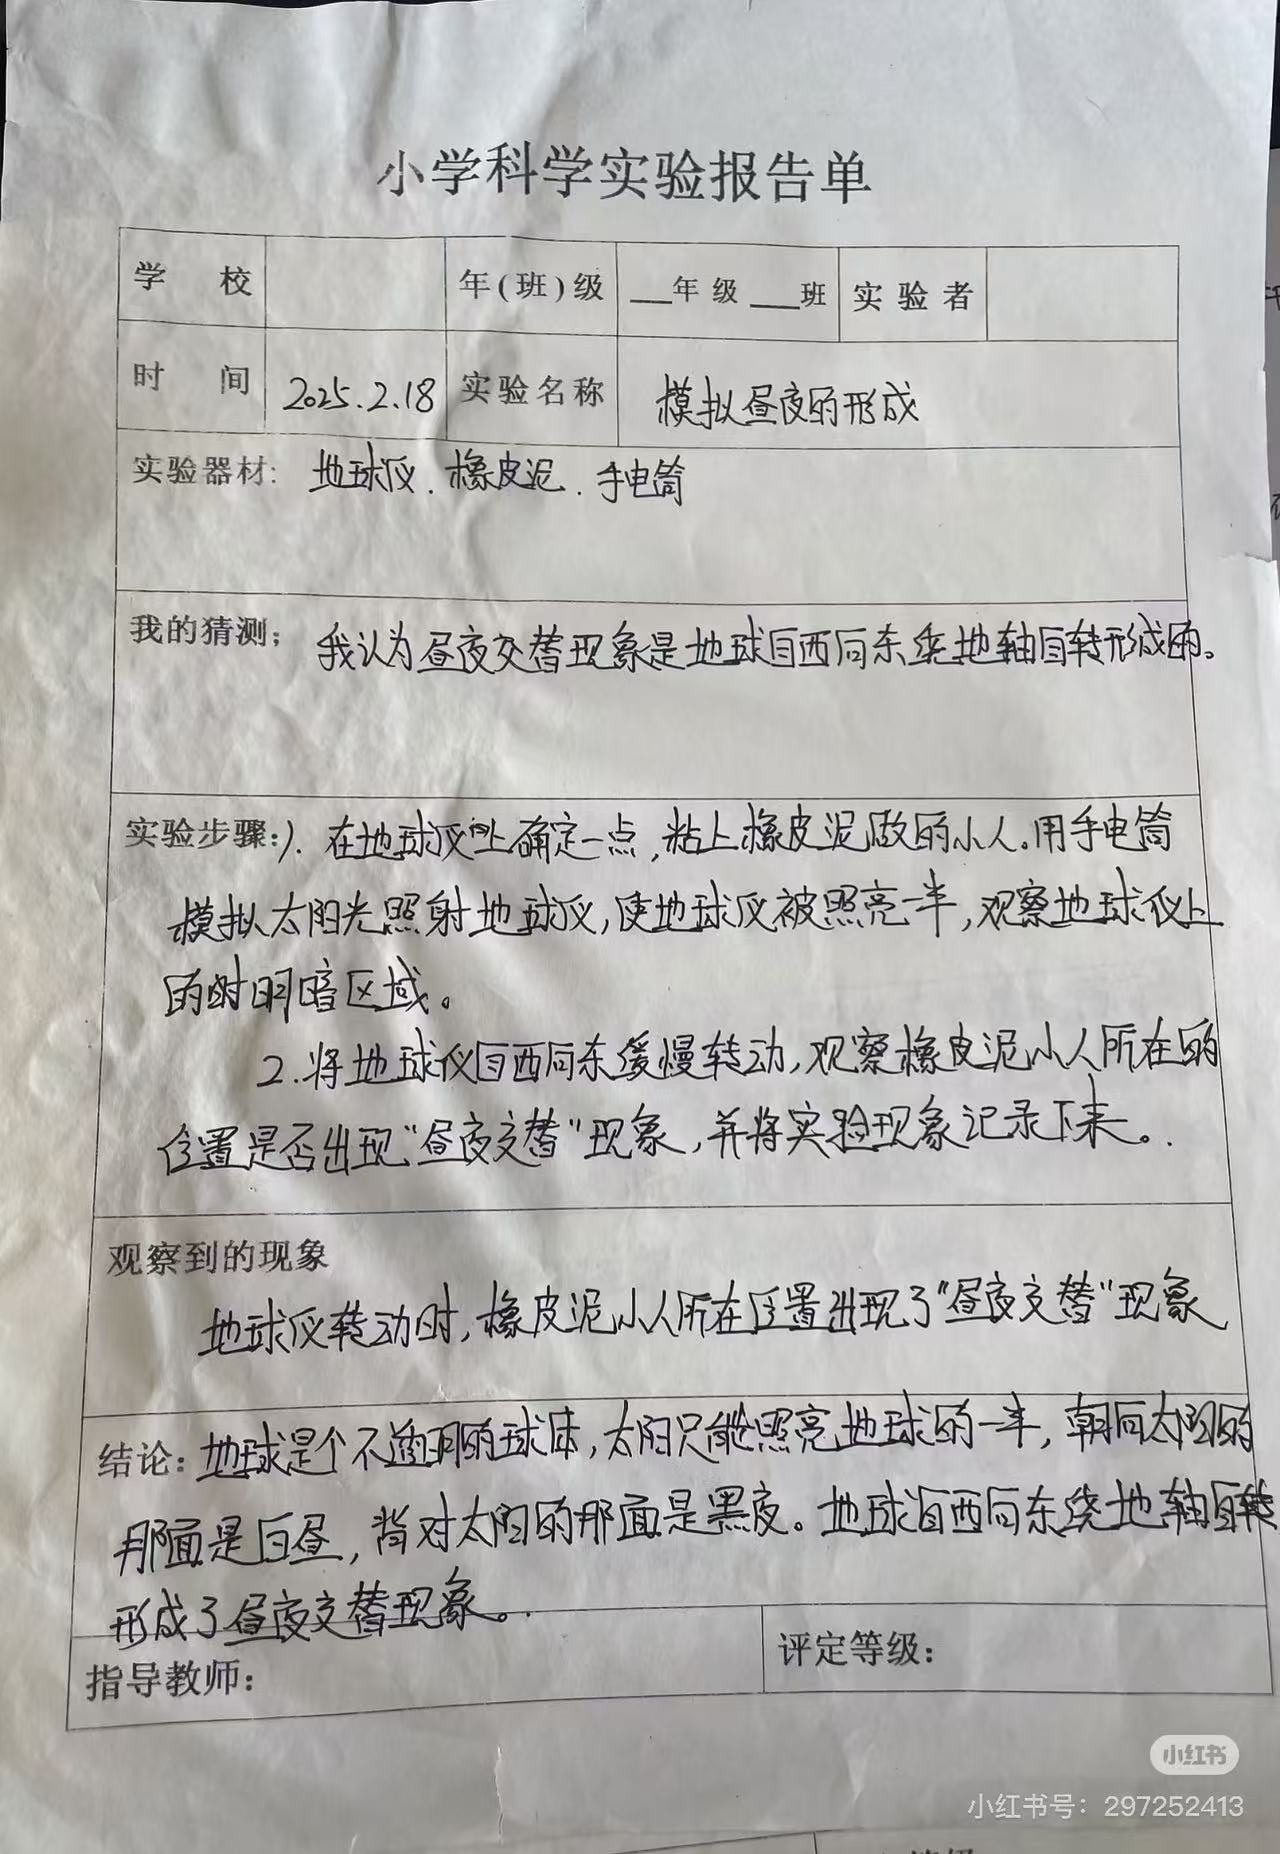 小学科学实验报告单
学 校 年(班)级 __年级 __班 实验者
时 间 2025.2.18 实验名称 模拟昼夜的形成
实验器材: 地球仪.橡皮泥.手电筒
我的猜测; 我认为昼夜交替现象是地球自西向东绕地轴自转形成的。
实验步骤:1.在地球仪上确定一点,粘上橡皮泥做的小人。用手电筒
模拟太阳光照射地球仪,使地球仪被照亮一半,观察地球仪上
的时明暗区域。
2.将地球仪自西向东缓慢转动,观察橡皮泥小人所在的
位置是否出现"昼夜交替"现象,并将实验现象记录下来。
观察到的现象
地球仪转动时,橡皮泥小人所在位置出现了"昼夜交替"现象
结论:地球是个不透明的球体,太阳只能照亮地球的一半,朝向太阳的
那面是白昼,背对太阳的那面是黑夜。地球自西向东绕地轴自转
形成了昼夜交替现象。
指导教师: 评定等级:
小红书
小红书号:297252413